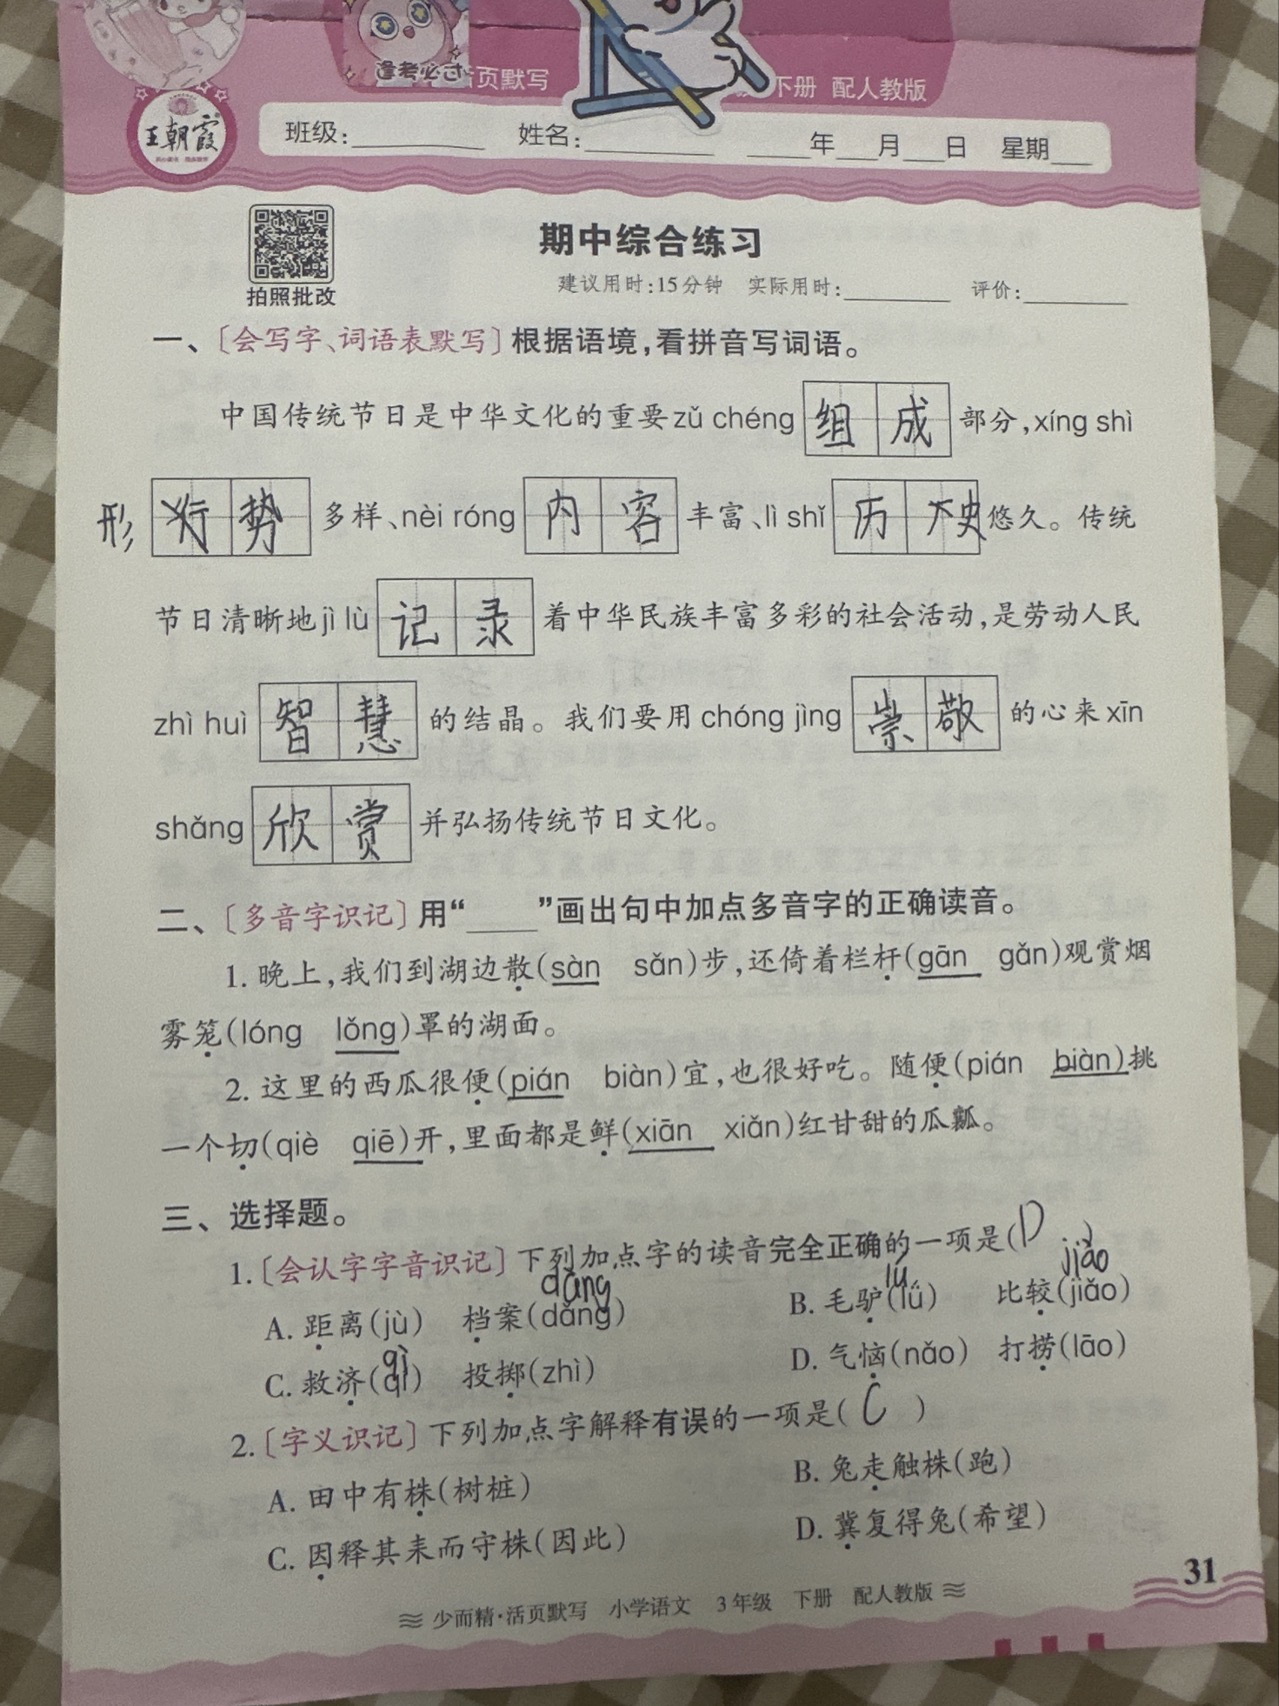 逢考必过 活页默写 下册 配人教版
王朝霞
班级: 姓名: 年 月 日 星期
期中综合练习
拍照批改
建议用时:15分钟 实际用时: 评价:
一、〔会写字、词语表默写〕根据语境,看拼音写词语。
中国传统节日是中华文化的重要zǔ chéng 组成 部分,xíng shì
形 势 多样、nèi róng 内容 丰富、lì shǐ 历 史 悠久。传统
节日清晰地jì lù 记录 着中华民族丰富多彩的社会活动,是劳动人民
zhì huì 智慧 的结晶。我们要用chóng jìng 崇敬 的心来xīn
shǎng 欣赏 并弘扬传统节日文化。
二、〔多音字识记〕用“____”画出句中加点多音字的正确读音。
1. 晚上,我们到湖边散(sàn sǎn)步,还倚着栏杆(gān gǎn)观赏烟
雾笼(lóng lǒng)罩的湖面。
2. 这里的西瓜很便(pián biàn)宜,也很好吃。随便(pián biàn)挑
一个切(qiè qiē)开,里面都是鲜(xiān xiǎn)红甘甜的瓜瓤。
三、选择题。
1.〔会认字字音识记〕下列加点字的读音完全正确的一项是(D
dàng lǘ jiào
A. 距离(jù) 档案(dǎng) B. 毛驴(lǘ) 比较(jiǎo)
C. 救济(qí) 投掷(zhì) D. 气恼(nǎo) 打捞(lāo)
2.〔字义识记〕下列加点字解释有误的一项是( C )
A. 田中有株(树桩) B. 兔走触株(跑)
C. 因释其耒而守株(因此) D. 冀复得兔(希望)
31
少而精·活页默写 小学语文 3年级 下册 配人教版